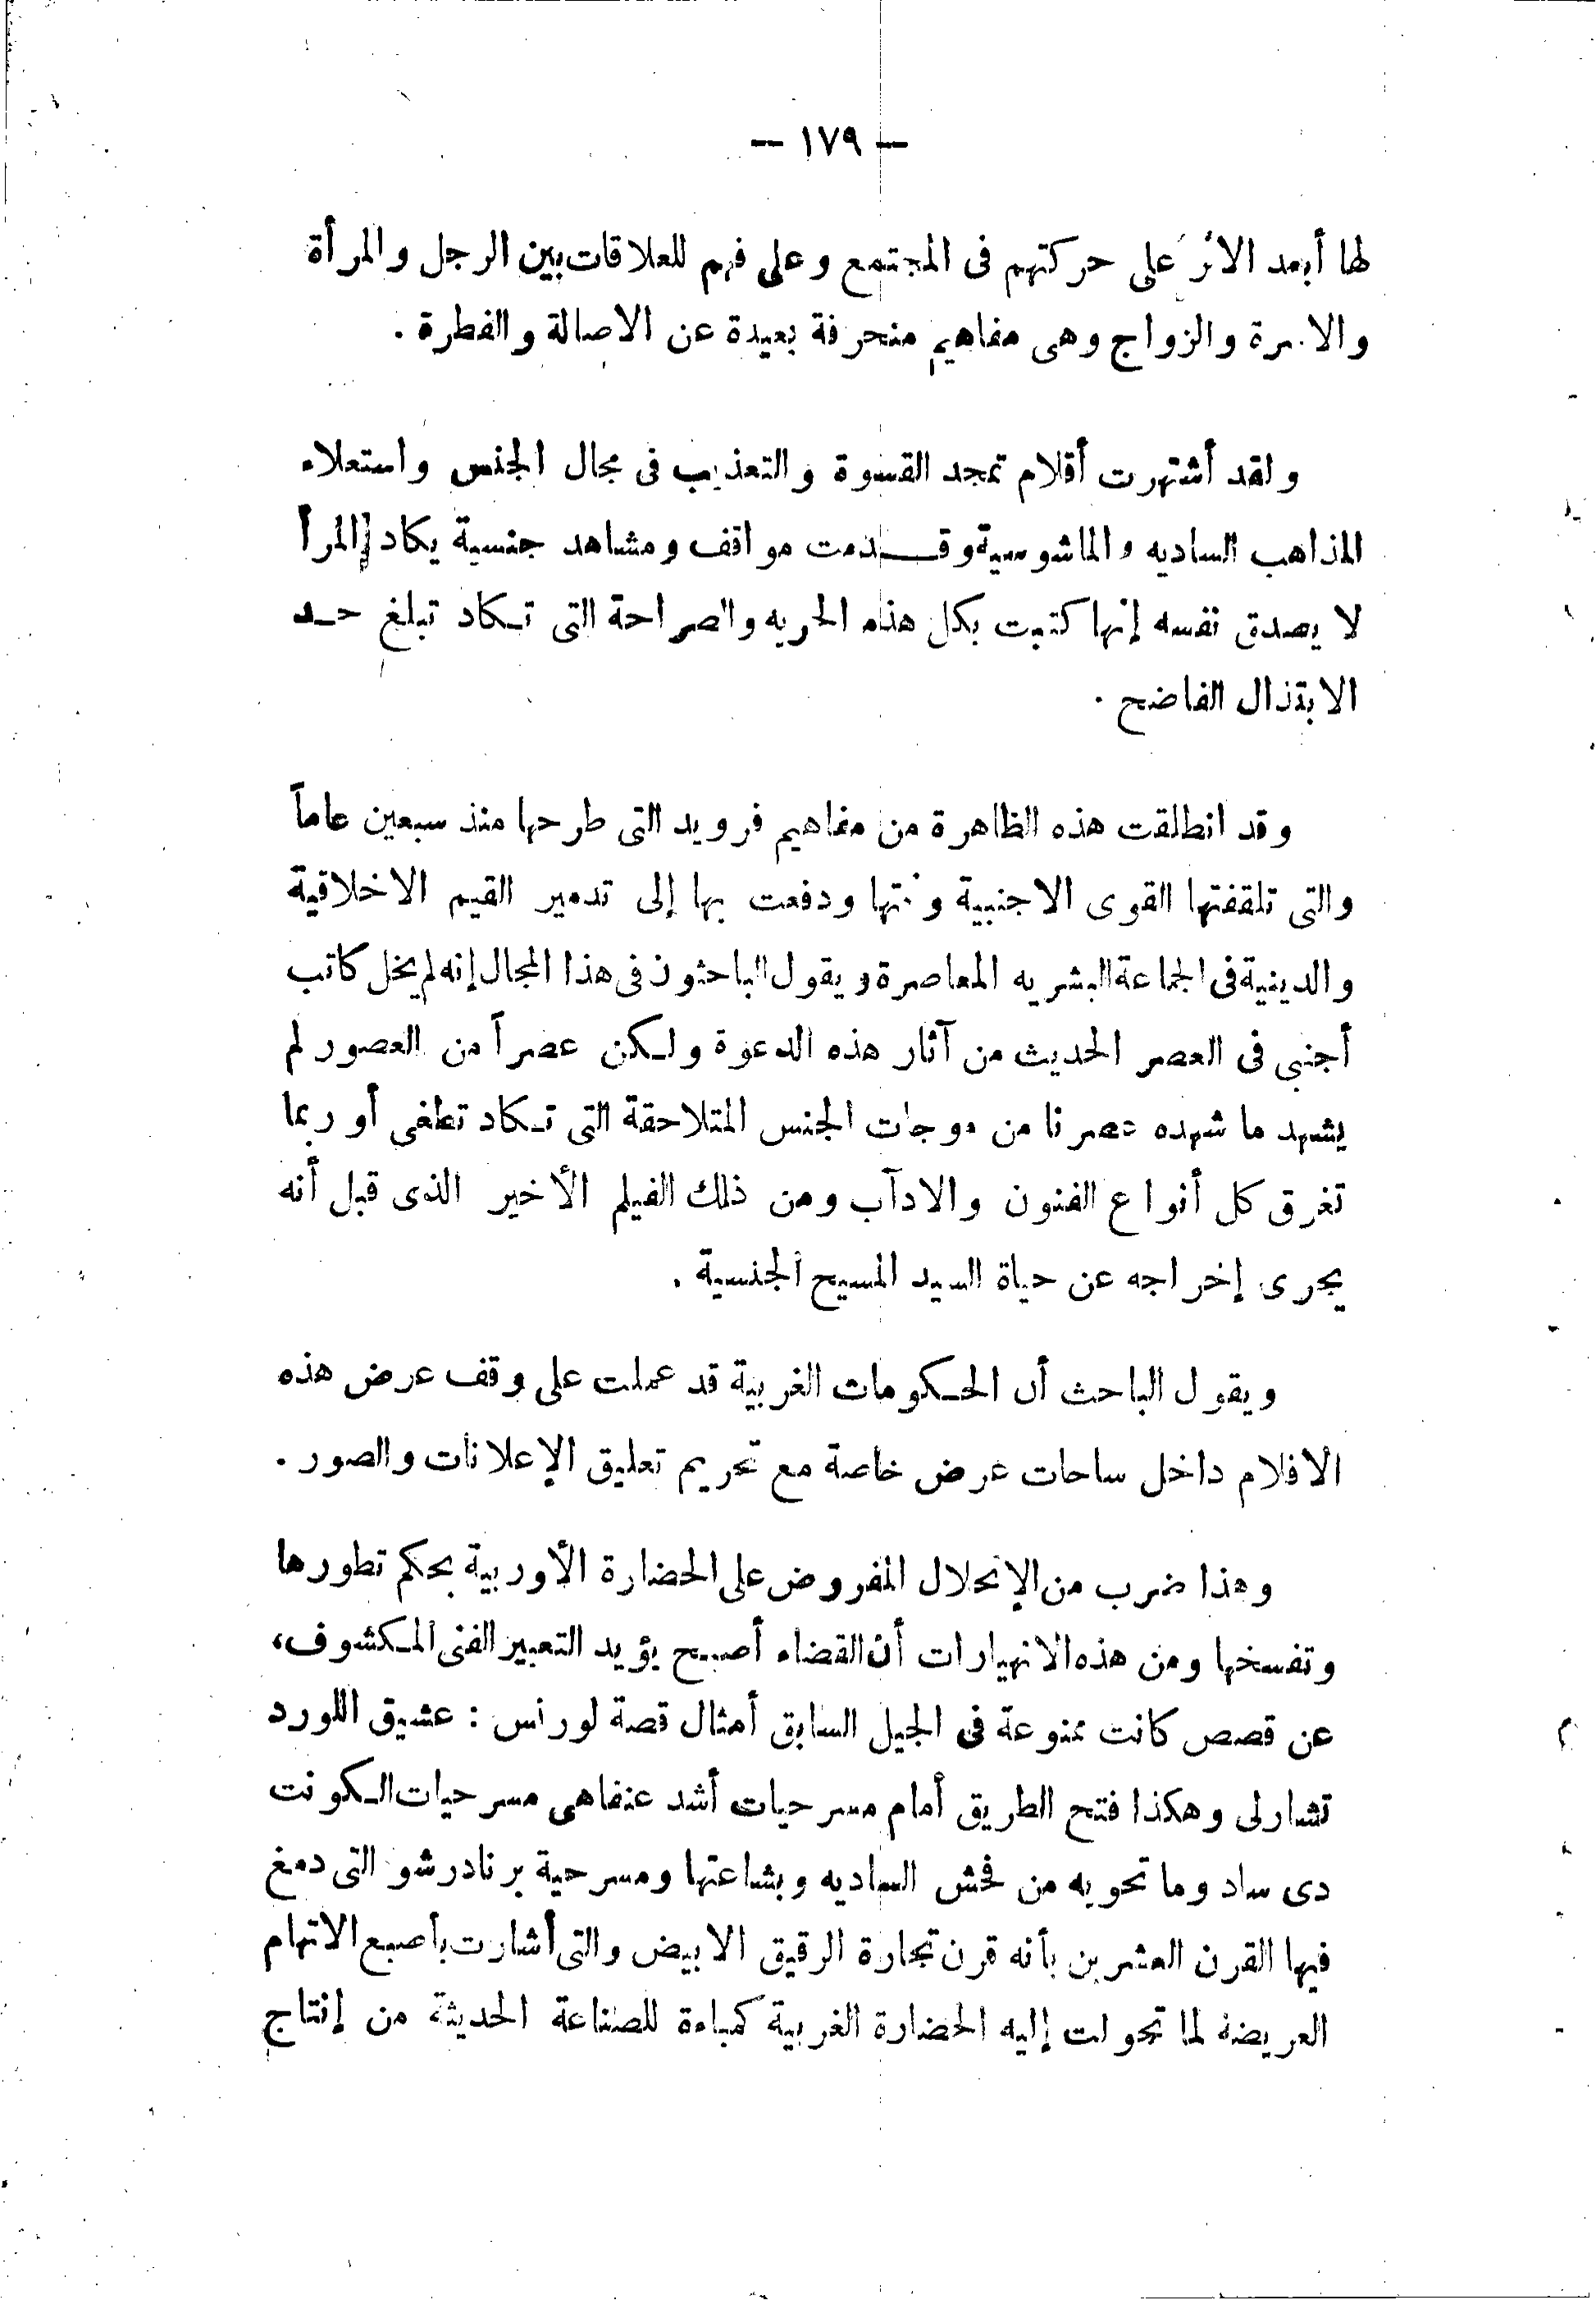 — ١٧٩ —
لها أبعد الاثر على حركتهم فى المجتمع وعلى فهم للعلاقات بين الرجل والمرأة
والاسرة والزواج وهى مفاهيم منحرفة بعيدة عن الاصالة والفطرة .
ولقد أشتهرت أقلام تمجد القسوة والتعذيب فى مجال الجنس واستعلاء
المذاهب الساديه والماشوسية وقـــدمت مواقف ومشاهد جنسية يكاد المرأ
لا يصدق نفسه إنها كتبت بكل هذه الحريه والصراحة التى تـكاد تبلغ حــد
الابتذال الفاضح .
وقد انطلقت هذه الظاهرة من مفاهيم فرويد التى طرحها منذ سبعين عاماً
والتى تلقفتها القوى الاجنبية ودفعت بها إلى تدمير القيم الاخلاقية
والدينية فى الجماعة البشريه المعاصرة ويقول الباحثون فى هذا المجال إنه لم يخل كاتب
أجنبى فى العصر الحديث من آثار هذه الدعوة ولـكن عصراً من العصور لم
يشهد ما شهده عصرنا من موجات الجنس المتلاحقة التى تـكاد تطغى أو ربما
تغرق كل أنواع الفنون والادآب ومن ذلك الفيلم الأخير الذى قبل أنه
يجرى إخراجه عن حياة السيد المسيح الجنسية .
ويقول الباحث أن الحـكومات الغربية قد عملت على وقف عرض هذه
الافلام داخل ساحات عرض خاصة مع تحريم تعليق الإعلانات والصور .
وهذا ضرب من الإنحلال المفروض على الحضارة الأوربية بحكم تطورها
وتفسخها ومن هذه الانهيارات أن القضاء أصبح يؤيد التعبير الفنى المـكشوف،
عن قصص كانت ممنوعة فى الجيل السابق أمثال قصة لورنس : عشيق اللورد
تشارلى وهكذا فتح الطريق أمام مسرحيات أشد عنفاهى مسرحيات الـكونت
دى ساد وما تحويه من فحش الساديه وبشاعتها ومسرحية برنادرشو التى دمغ
فيها القرن العشرين بأنه قرن تجارة الرقيق الابيض والتى أشارت بأصبع الاتهام
العريضة لما تحولت إليه الحضارة الغربية كمباءة للصناعة الحديثة من إنتاج